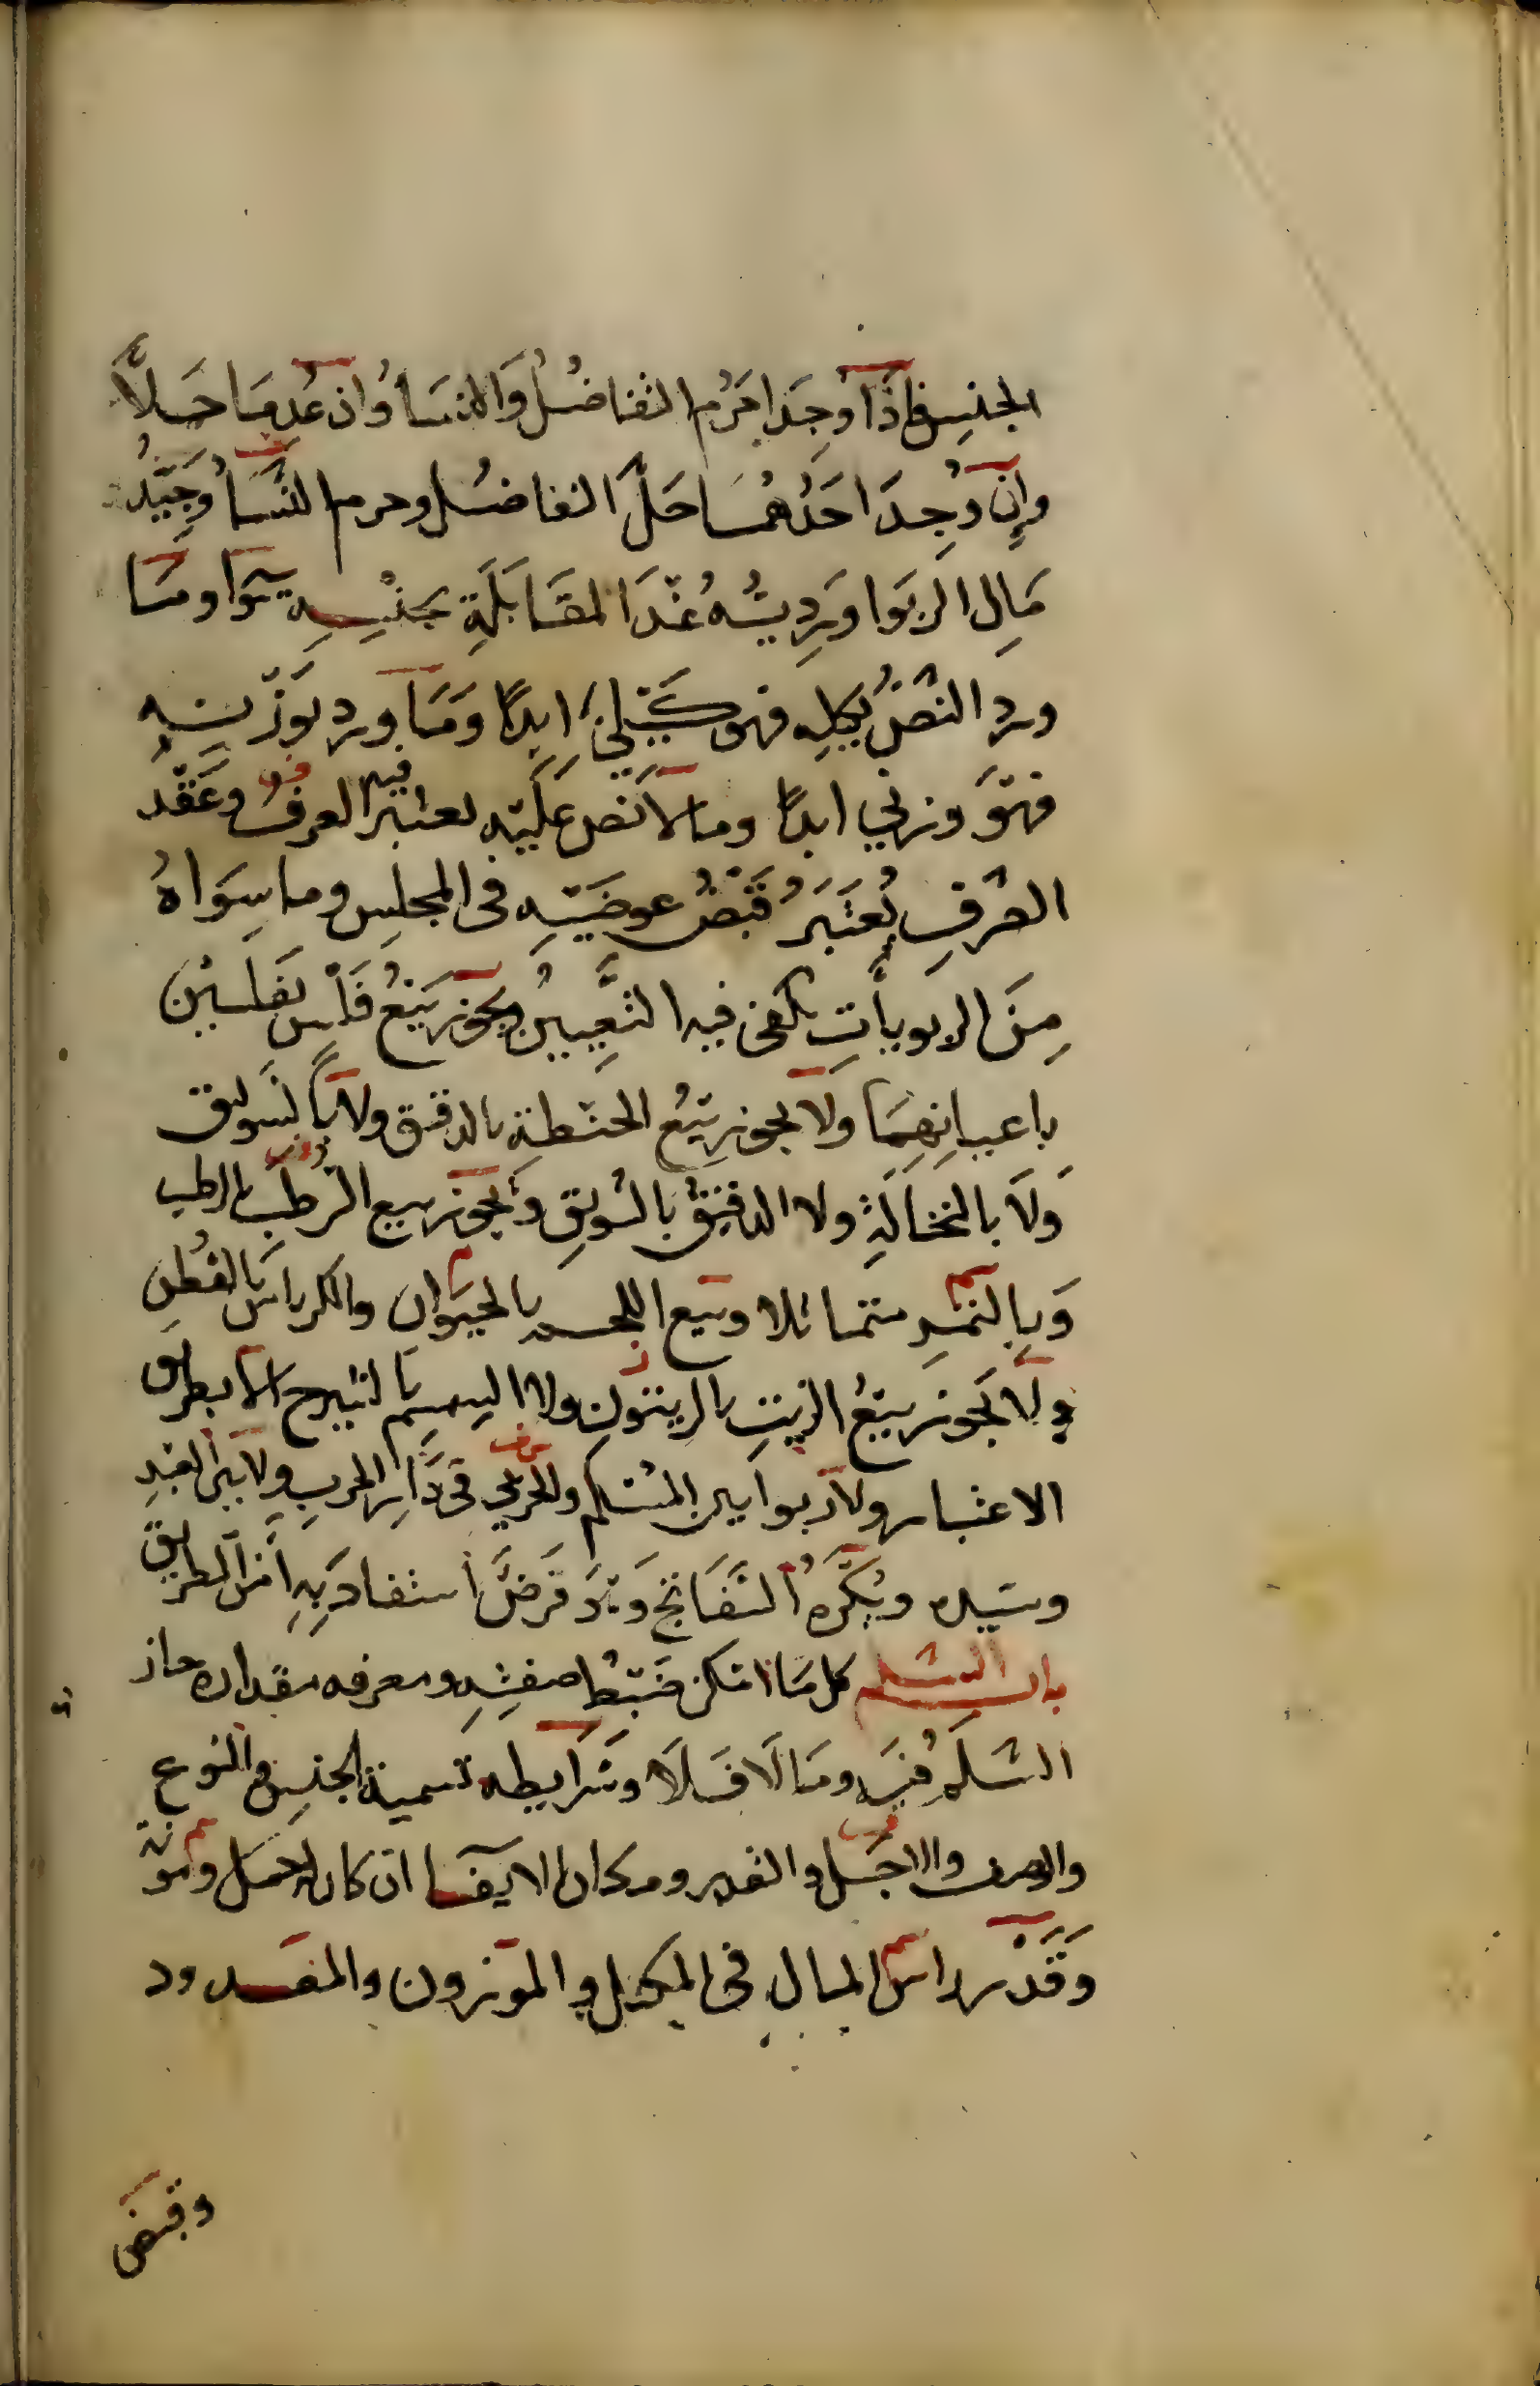 الجنس فاذا وجدا حرم التفاضل والنسأ وان عدما حلا
وان وجد احدهما حل التفاضل وحرم النسأ وجيد
مال الربوا ورديه عند المقابلة بجنسه سوا وما
ورد النص بكيله فهو كيلي ابدا وما ورد بوزنه
فهو وزني ابدا وما لا نص عليه يعتبر فيه العرف وعقد
الصرف يعتبر قبض عوضيه في المجلس وما سواه
من الربويات يكفى فيه التعيين ويجوز بيع فلس بفلسين
باعيانهما ولا يجوز بيع الحنطة بالدقيق ولا بالسويق
ولا بالنخالة ولا الدقيق بالسويق ويجوز بيع الرطب بالرطب
وبالتمر متماثلا وبيع اللحم بالحيوان والكرباس بالقطن
ولا يجوز بيع الزيت بالزيتون ولا السمسم بالشيرج الا بطريق
الاعتبار ولا ربوا بين المسلم والحربي في دار الحرب ولا بين العبد
وسيده ويكره السفاتج وهو قرض استفاد به امن الطريق
باب السلم كل ما امكن ضبط صفته ومعرفه مقداره جاز
السلم فيه وما لا فلا وشرايطه تسمية الجنس والنوع
والوصف والاجل والقدر ومكان الايفا ان كان له حمل ومونة
وقدر راس المال في المكيل والموزون والمعدود
وقبض